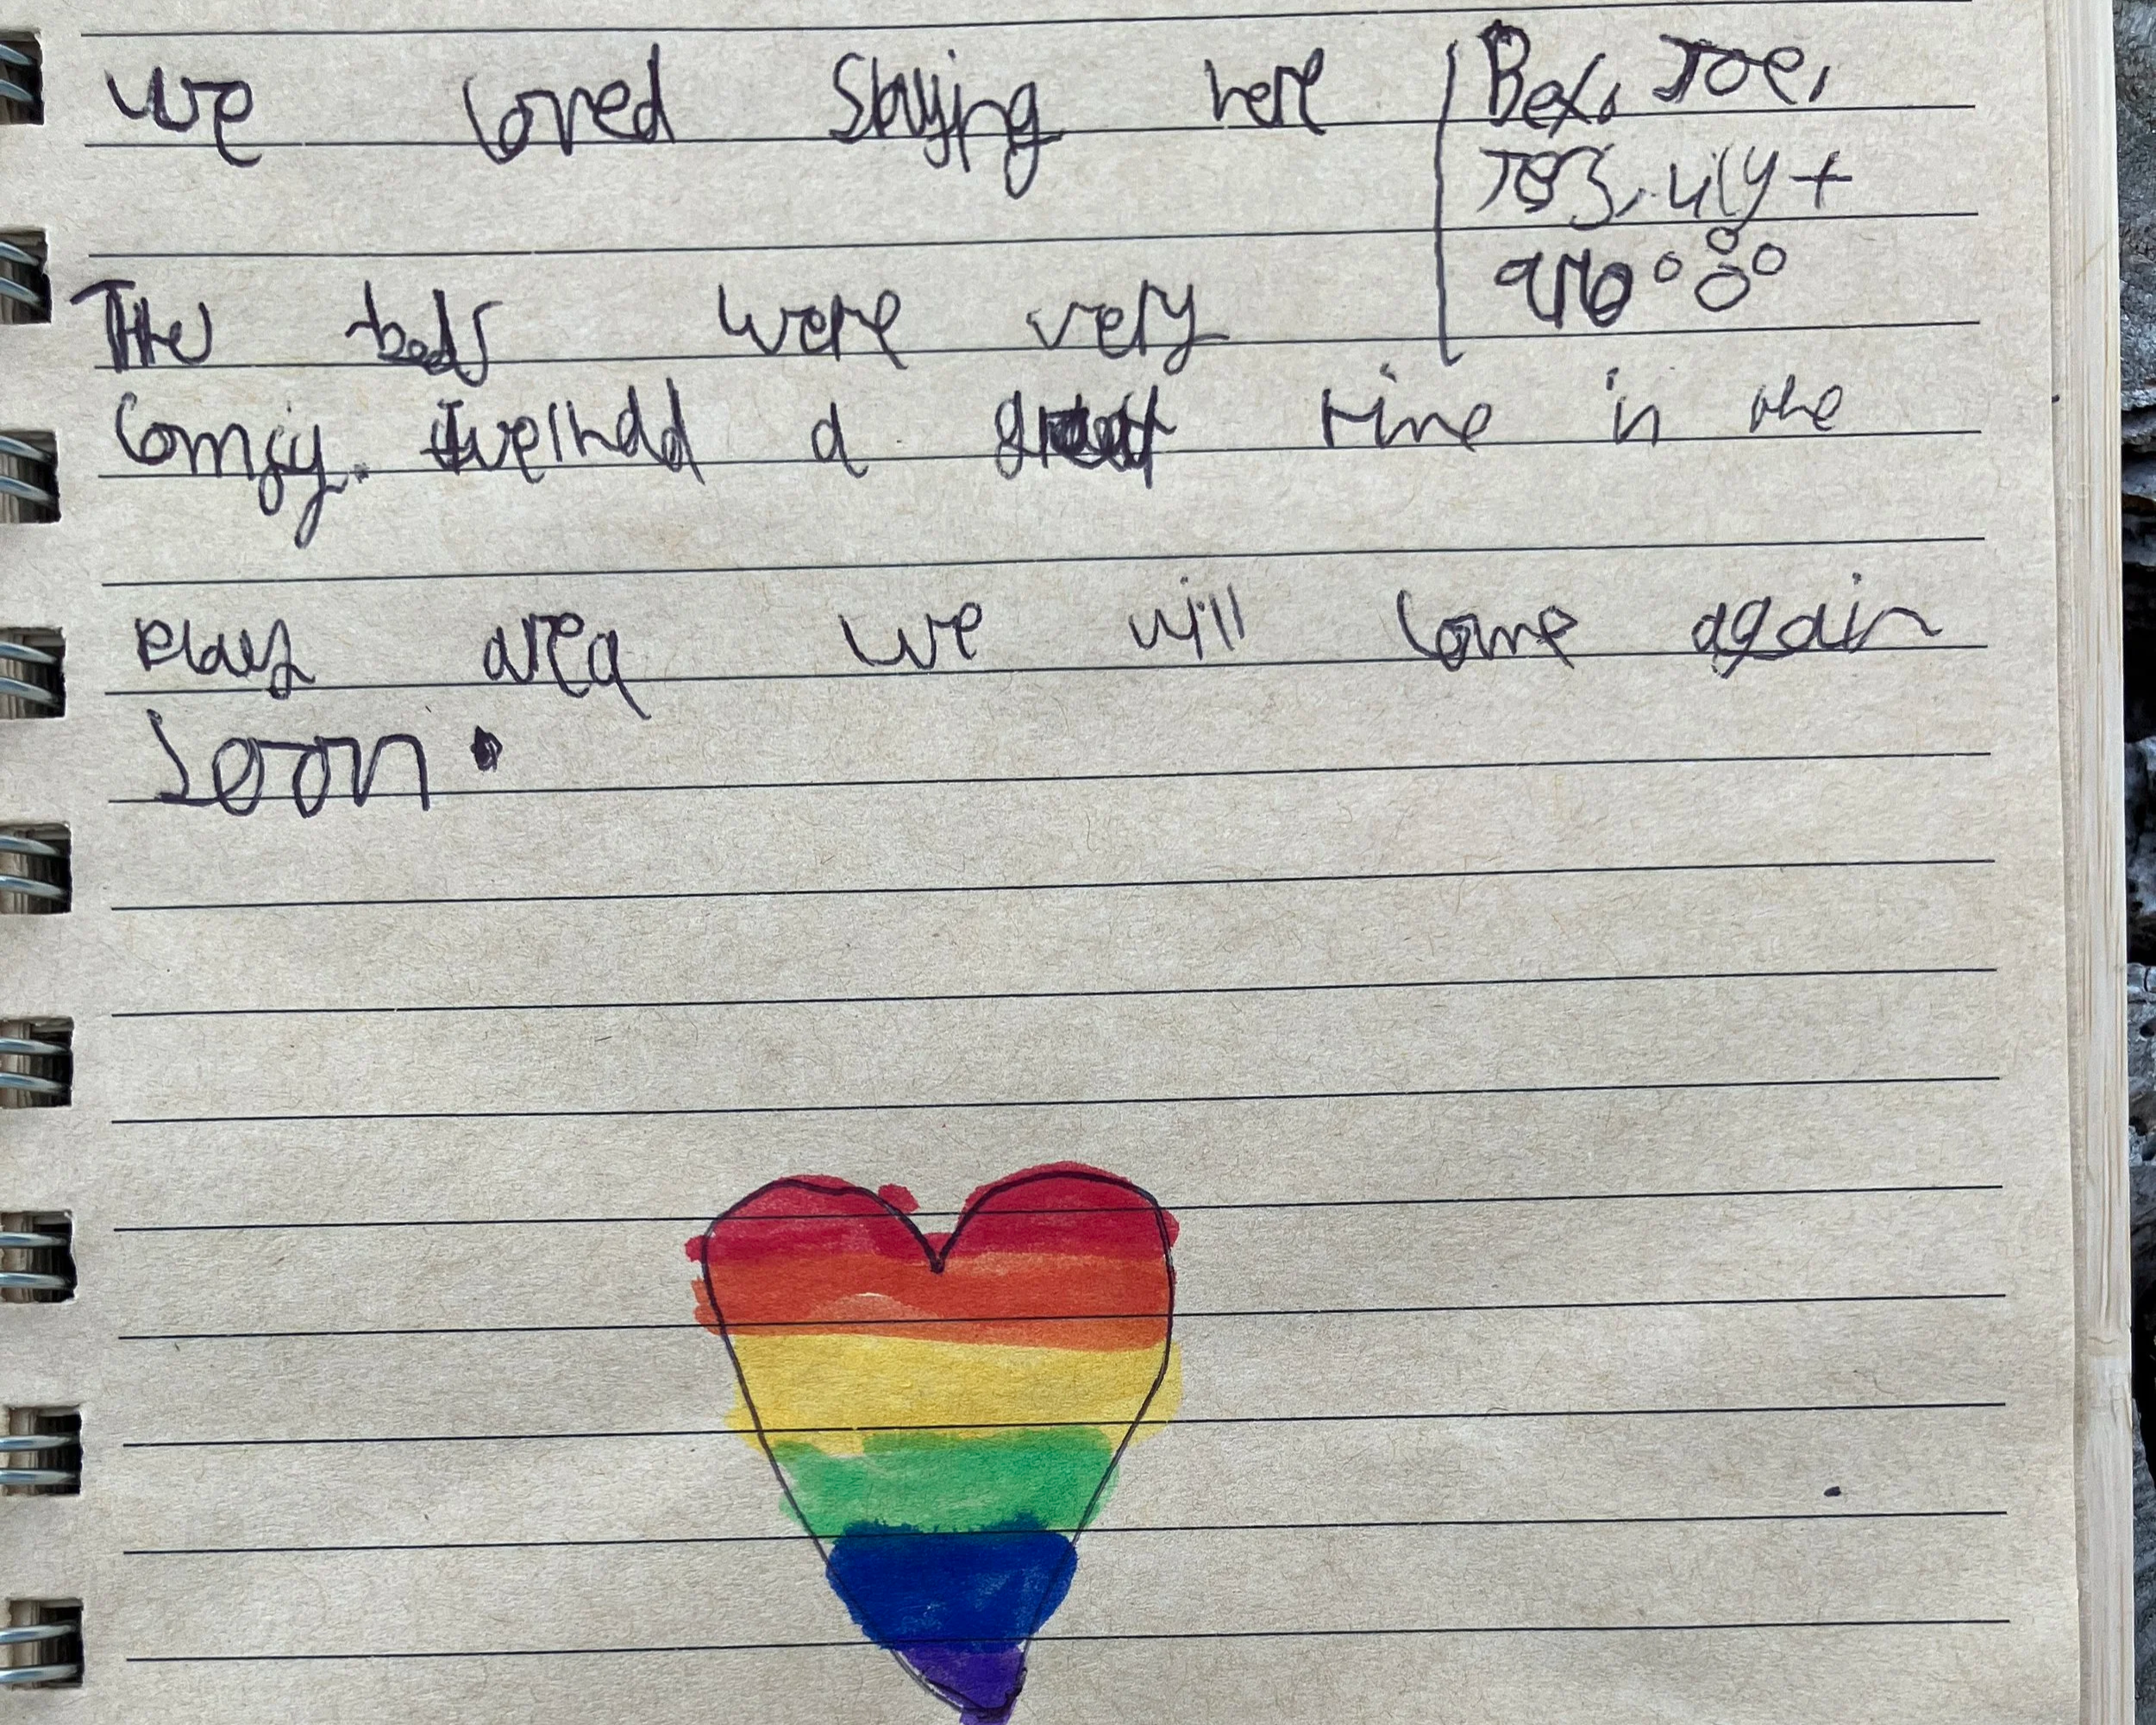 we loved Staying here
Bex, Joe,
The beds were very
comfy. we had a great time in the
play area we will come again
Soon.